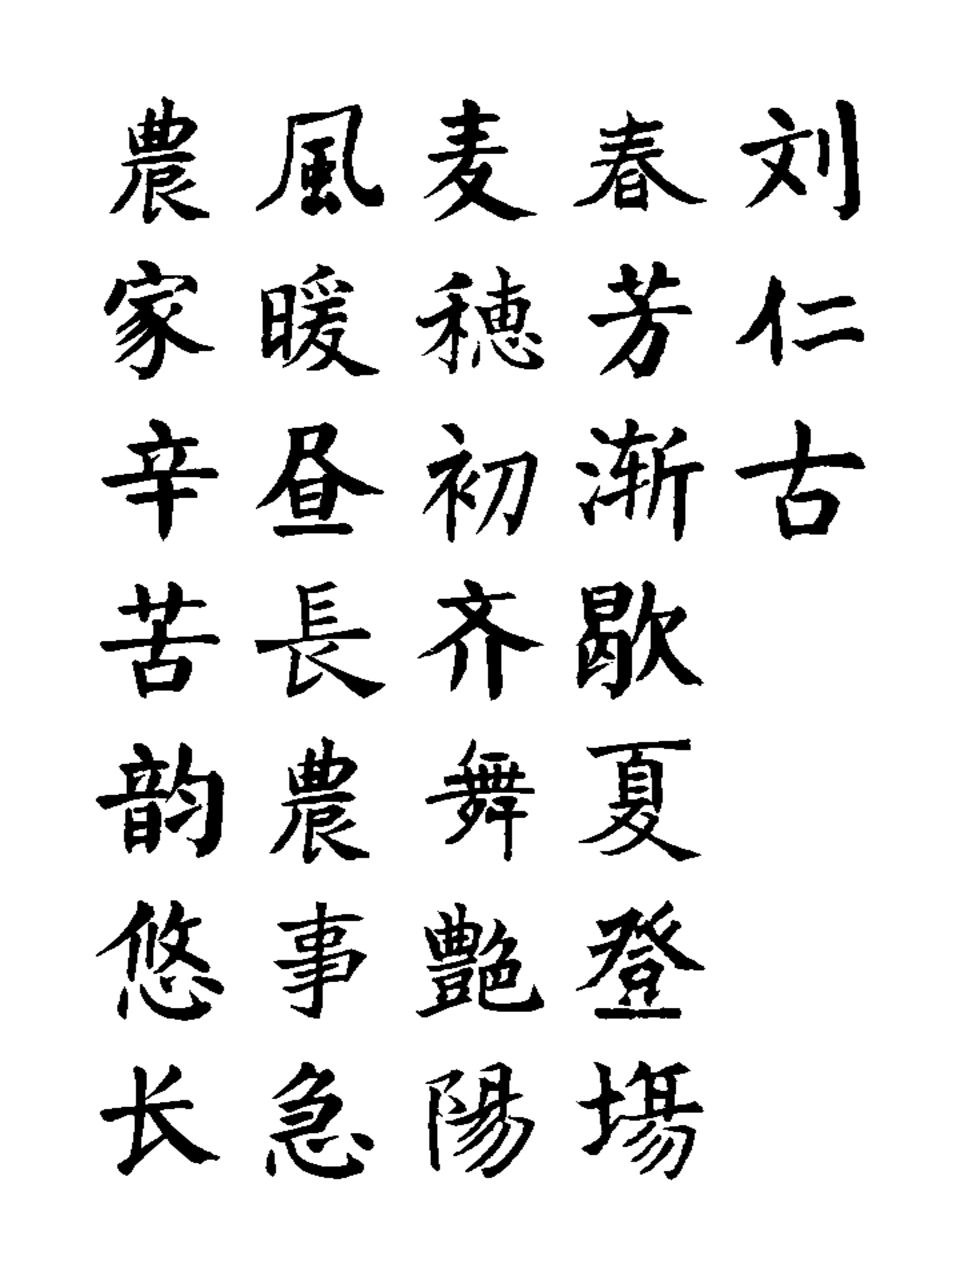 刘仁古
春芳渐歇夏登塲
麦穗初齐舞艶陽
風暖昼長農事急
農家辛苦韵悠长